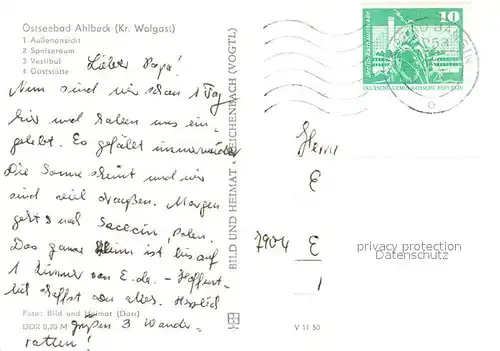 Ostseebad Ahlbeck (Kr. Wolgast)
1 Außenansicht
2 Speiseraum
3 Vestibül
4 Gaststätte
Lieber Papa!
Nun sind wir schon 1 Tag
hier und haben uns ein-
gelebt. Es gefällt immer wieder
Die Sonne scheint und wir
sind viel draußen. Morgen
geht's nach Polen.
Das ganze Heim ist bis auf
1 Zimmer von - Hoffent-
lich schafft alles. Herzlich
Foto: Bild und Heimat (Darr)
DDR 0,20 M
grüßen 3 Wander-
ratten!
BILD UND HEIMAT REICHENBACH (VOGTL)
V 11 50
10
DEUTSCHE DEMOKRATISCHE REPUBLIK
Herrn
E
7904 E
privacy protection
Datenschutz